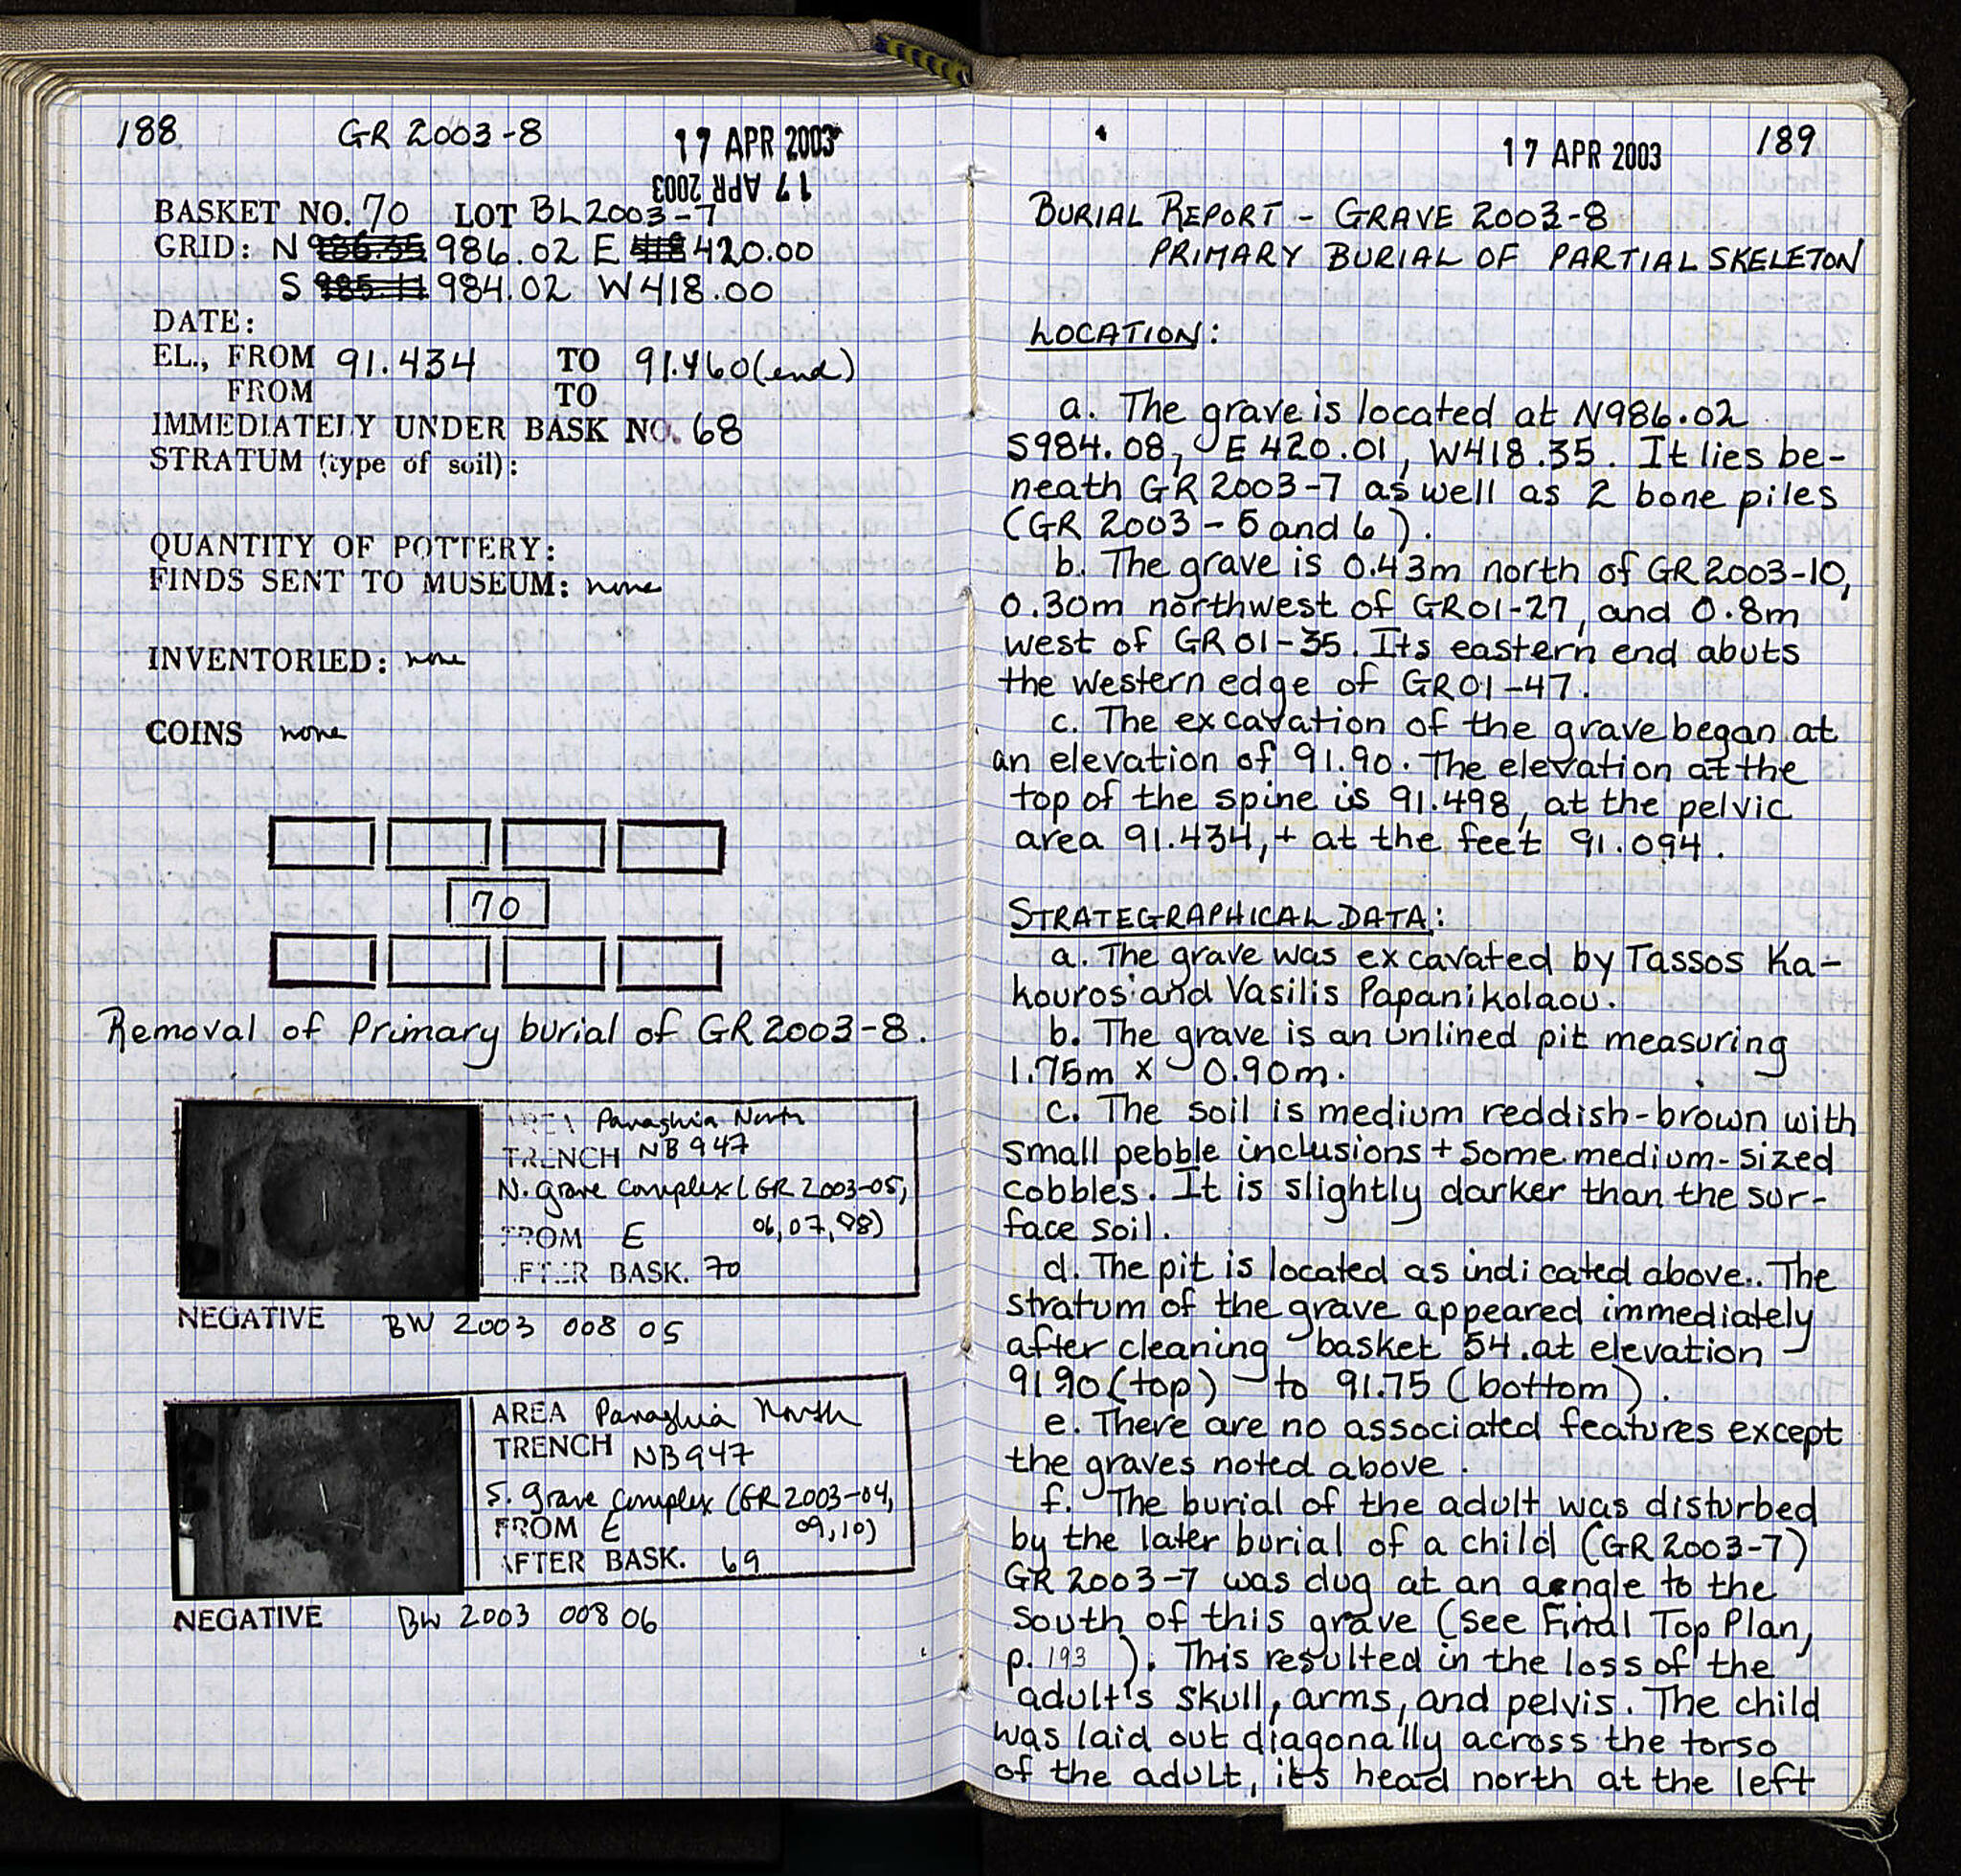 188 GR 2003-8 17 APR 2003
17 APR 2003
BASKET NO. 70 LOT BL2003-7
GRID: N 986.02 E 420.00
S 984.02 W 418.00
DATE:
EL., FROM 91.434 TO 91.460 (end)
FROM TO
IMMEDIATELY UNDER BASK NO. 68
STRATUM (type of soil):
QUANTITY OF POTTERY:
FINDS SENT TO MUSEUM: none
INVENTORIED: none
COINS none
70
Removal of Primary burial of GR 2003-8.
AREA Panaghia North
TRENCH NB947
N. grave complex (GR 2003-05,
06, 07, 08)
FROM E
AFTER BASK. 70
NEGATIVE BW 2003 008 05
AREA Panaghia North
TRENCH NB947
S. grave complex (GR 2003-04,
09, 10)
FROM E
AFTER BASK. 69
NEGATIVE BW 2003 008 06
17 APR 2003 189
BURIAL REPORT - GRAVE 2003-8
PRIMARY BURIAL OF PARTIAL SKELETON
LOCATION:
a. The grave is located at N986.02
S984.08, E 420.01, W418.35. It lies be-
neath GR 2003-7 as well as 2 bone piles
(GR 2003 - 5 and 6).
b. The grave is 0.43m north of GR2003-10,
0.30m northwest of GR01-27, and 0.8m
west of GR01-35. Its eastern end abuts
the western edge of GR01-47.
c. The excavation of the grave began at
an elevation of 91.90. The elevation at the
top of the spine is 91.498, at the pelvic
area 91.434, + at the feet 91.094.
STRATEGRAPHICAL DATA:
a. The grave was excavated by Tassos Ka-
kouros and Vasilis Papanikolaou.
b. The grave is an unlined pit measuring
1.75m x 0.90m.
c. The soil is medium reddish-brown with
small pebble inclusions + some medium-sized
cobbles. It is slightly darker than the sur-
face soil.
d. The pit is located as indicated above. The
stratum of the grave appeared immediately
after cleaning basket 54 at elevation
91.90 (top) to 91.75 (bottom).
e. There are no associated features except
the graves noted above.
f. The burial of the adult was disturbed
by the later burial of a child (GR 2003-7)
GR 2003-7 was dug at an angle to the
south of this grave (see Final Top Plan,
p. 193 ). This resulted in the loss of the
adult's skull, arms, and pelvis. The child
was laid out diagonally across the torso
of the adult, its head north at the left